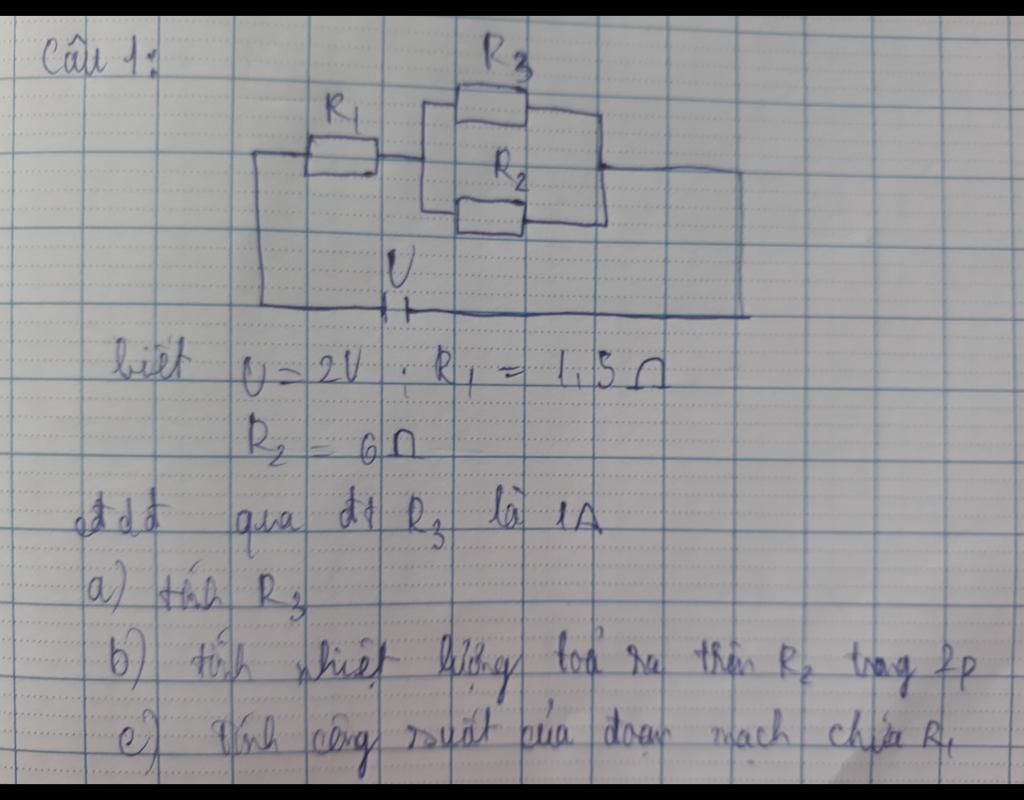 Câu 1:
R3
R1
R2
U
biết U = 2V ; R1 = 1,5 Ω
R2 = 6 Ω
cđdđ qua đt R3 là 1A
a) tính R3
b) tính nhiệt lượng toả ra trên R2 trong 2p
c) tính công suất của đoạn mạch chứa R1